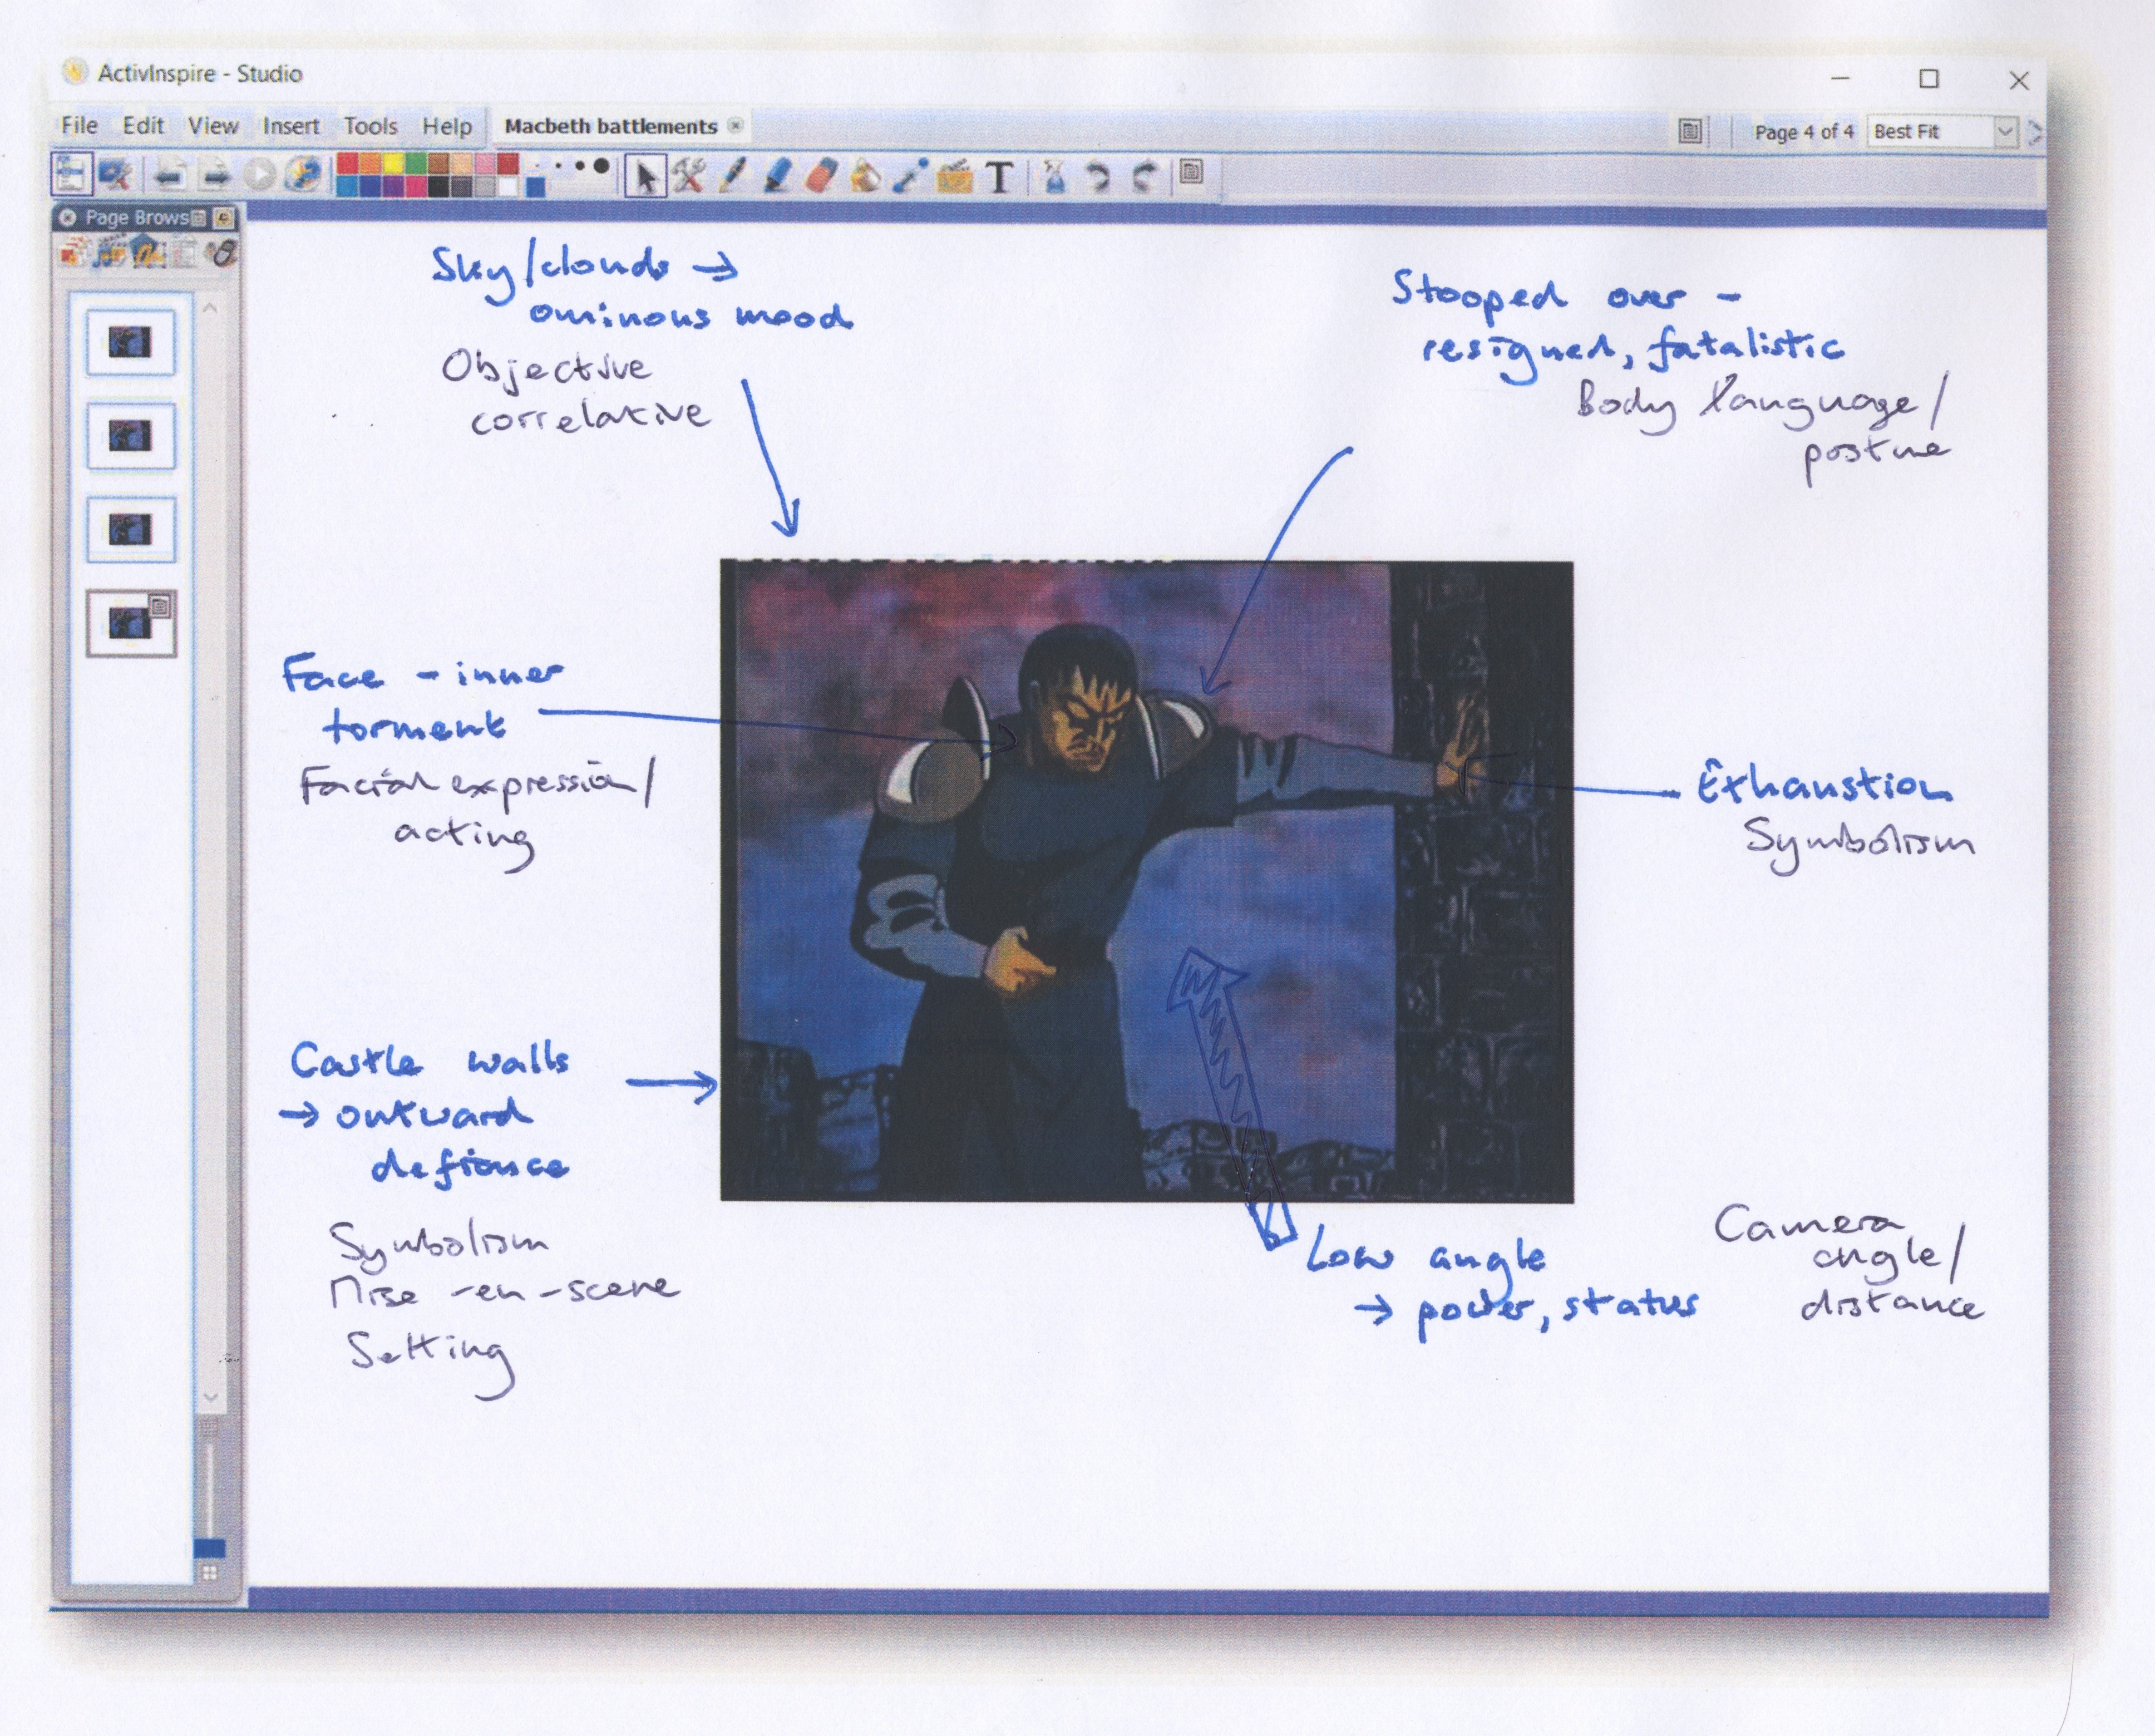 ActivInspire - Studio
File Edit View Insert Tools Help
Macbeth battlements
Page 4 of 4
Best Fit
T
Page Brows
Sky/clouds →
ominous mood
Objective
correlative
Stooped over -
resigned, fatalistic
Body language/
posture
Face - inner
torment
Facial expression/
acting
Exhaustion
Symbolism
Castle walls
→ outward
defiance
Symbolism
Mise-en-scene
Setting
Low angle
→ power, status
Camera
angle/
distance